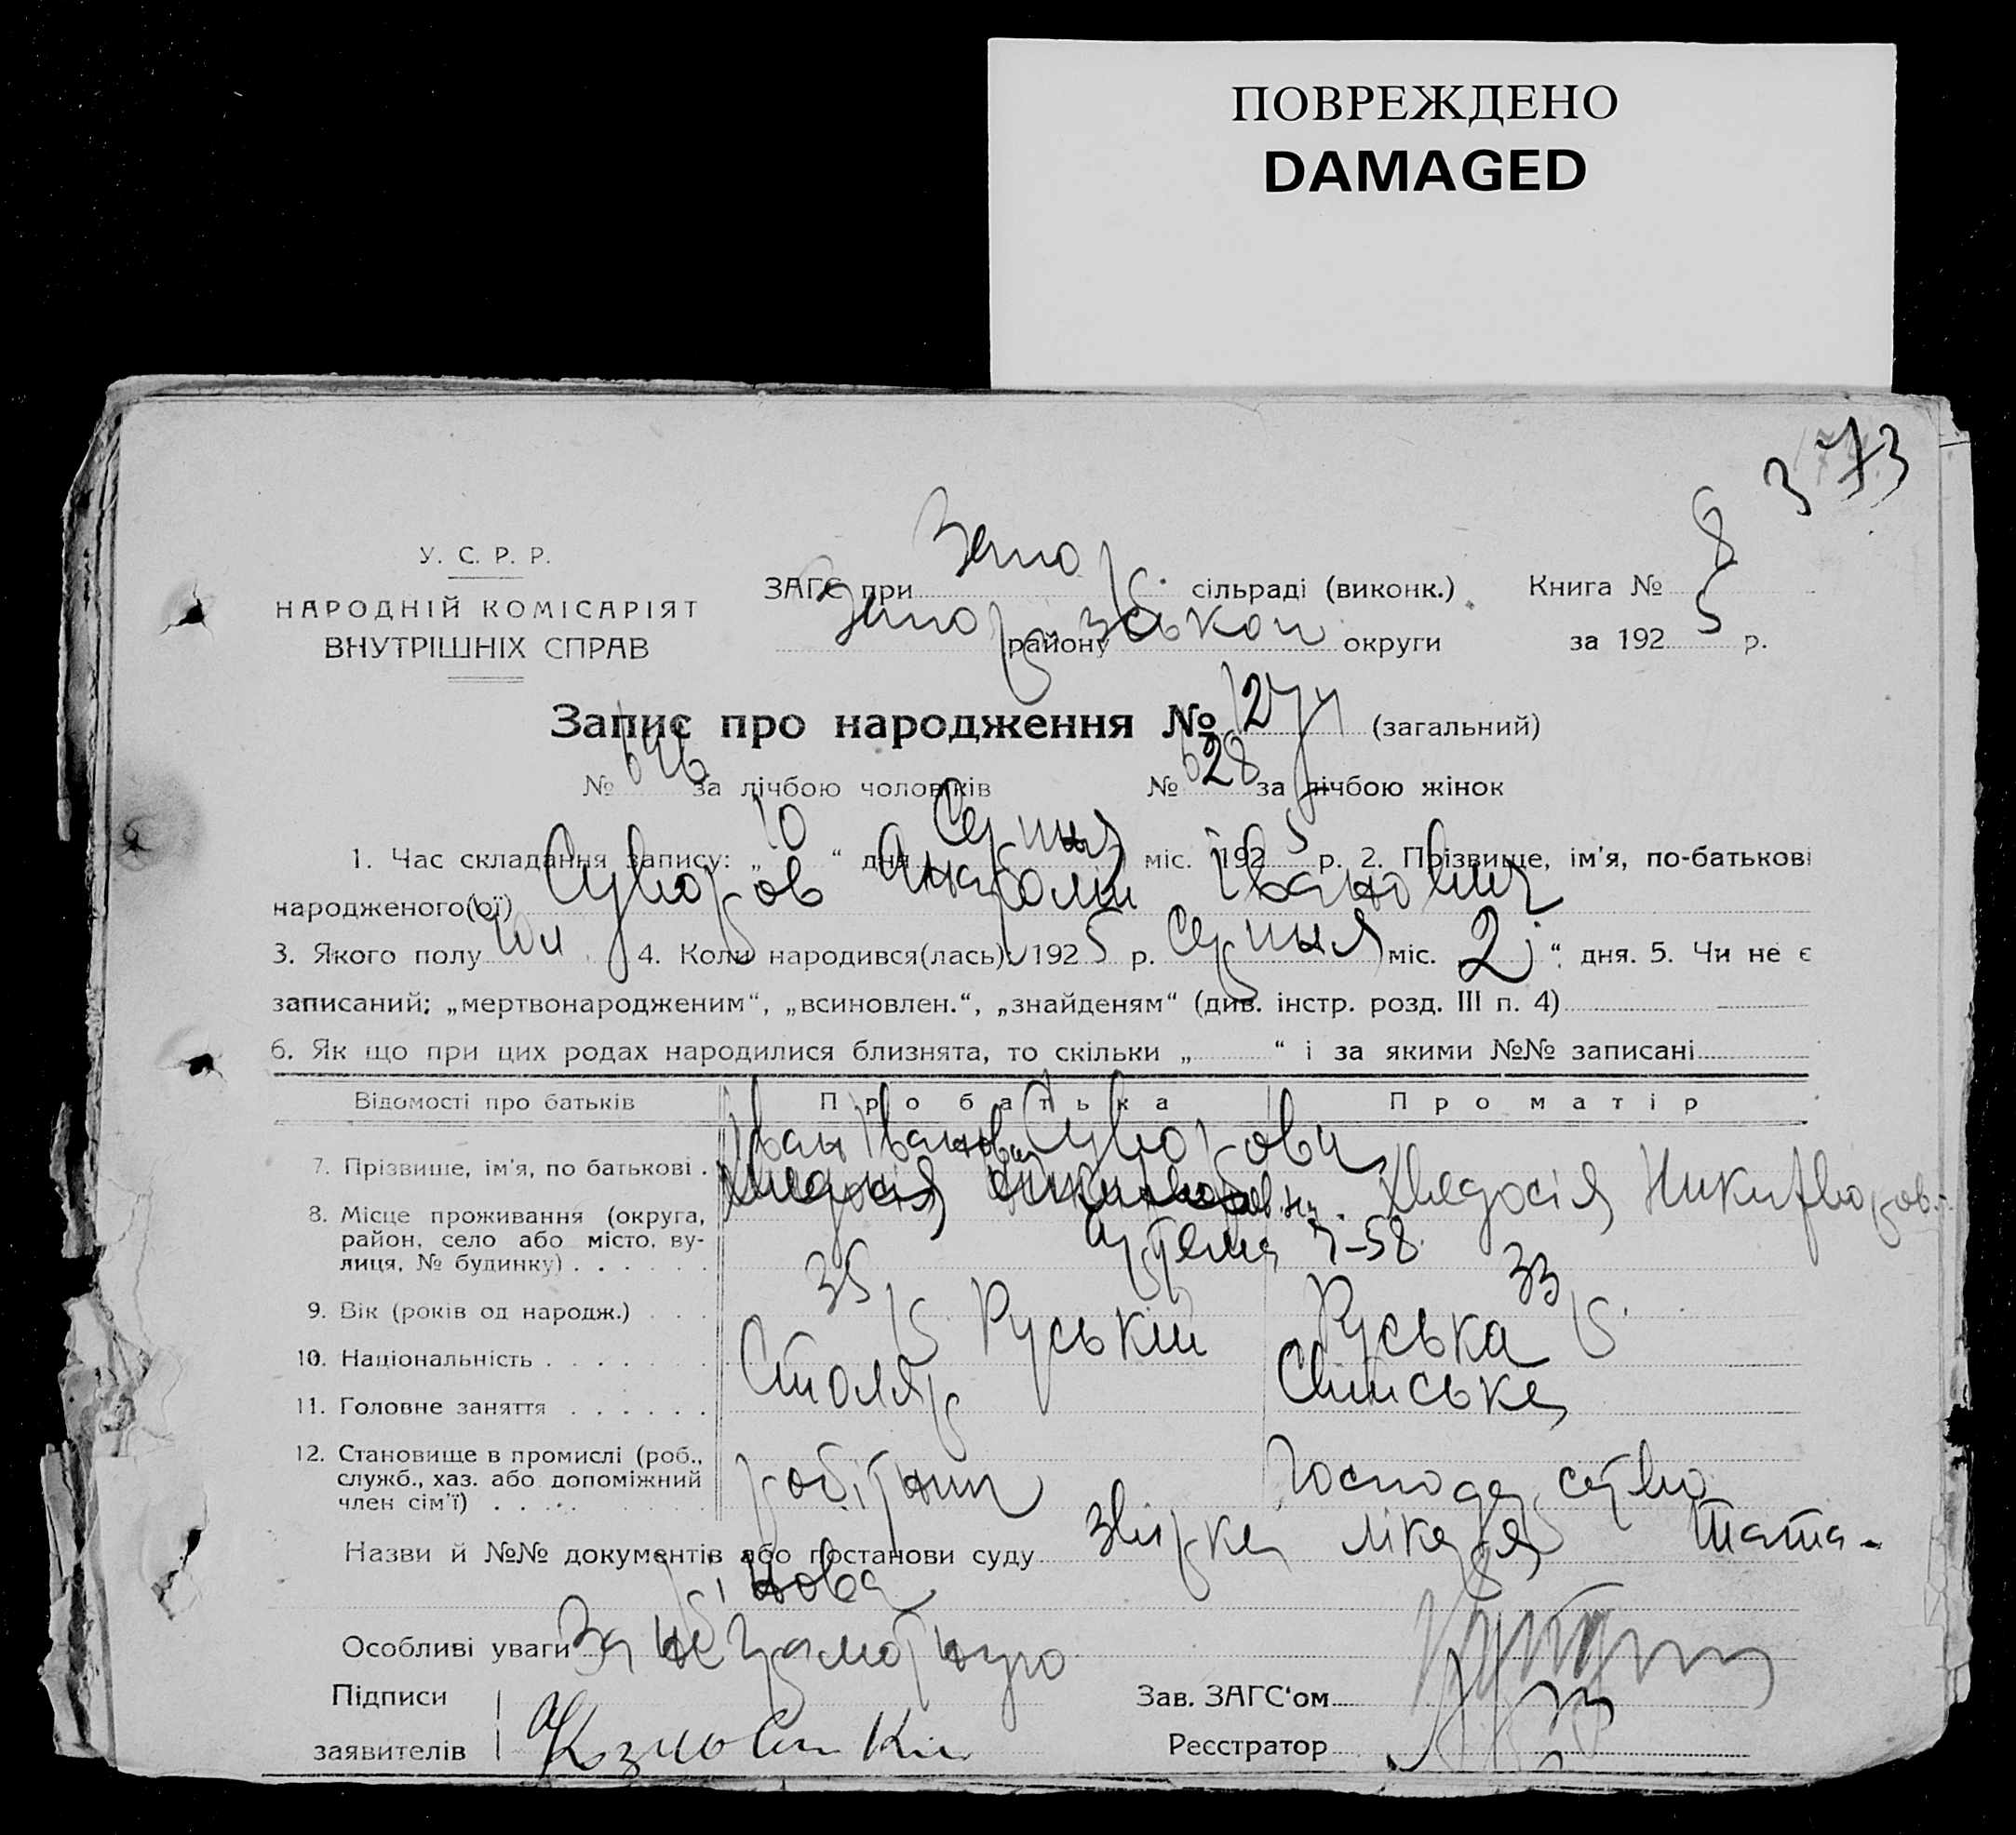 ПОВРЕЖДЕНО
DAMAGED
373
У. С. Р. Р.
НАРОДНІЙ КОМІСАРІЯТ
ВНУТРІШНІХ СПРАВ
ЗАГС при Запор. сільраді (виконк.)
Запорізької району округи
Книга № 8
за 1925 р.
Запис про народження № 1274 (загальний)
№ 646 за лічбою чоловіків № 628 за лічбою жінок
1. Час складання запису: „10“ дня Серпня міс. 1925 р. 2. Прізвище, ім'я, по-батькові
народженого(ої) Суворов Анатолій Іванович
3. Якого полу чол 4. Коли народився(лась) 1925 р. Серпня міс. „2“ дня. 5. Чи не є
записаний: „мертвонародженим“, „всиновлен.“, „знайденям“ (див. інстр. розд. III п. 4)
6. Як що при цих родах народилися близнята, то скільки „ “ і за якими №№ записані
Відомості про батьків Про батька Про матір
7. Прізвище, ім'я, по батькові . Іван Іванови Суворови Хведосія Никифоров.
8. Місце проживання (округа, район, село або місто, вулиця, № будинку) . . . . . . Артема 7-58
9. Вік (років од народж.) . . . 35 р 33 р.
10. Національність . . . . . . . Руській Руська
11. Головне заняття . . . . . . Столяр Хатська
12. Становище в промислі (роб., служб., хаз. або допоміжний член сім'ї) . . . . робітник господарство
Назви й №№ документів або постанови суду лікаря Тата-
рінова
Особливі уваги За неграмотную
Підписи
заявителів
Зав. ЗАГС'ом
Реєстратор